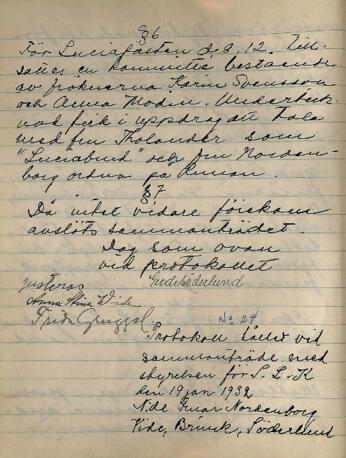 §6
För Luciafesten d. 12. till-
sattes en kommitté bestående
av fröknarna Karin Svensson
och Anna Modin. Underteck-
nad fick i uppdrag att tala
med fru Tholander som
"Luciabrud" och fru Norden-
borg ordna på
§7
Då intet vidare förekom
avslöts sammanträdet.
Dag som ovan
vid protokollet
Söderlund
Justeras
Anna Stina
Frida
No 24
Protokoll hållet vid
sammanträde med
styrelsen för S. L. K
den 19 jan 1932
Nordenborg
Vide, Brink, Söderlund